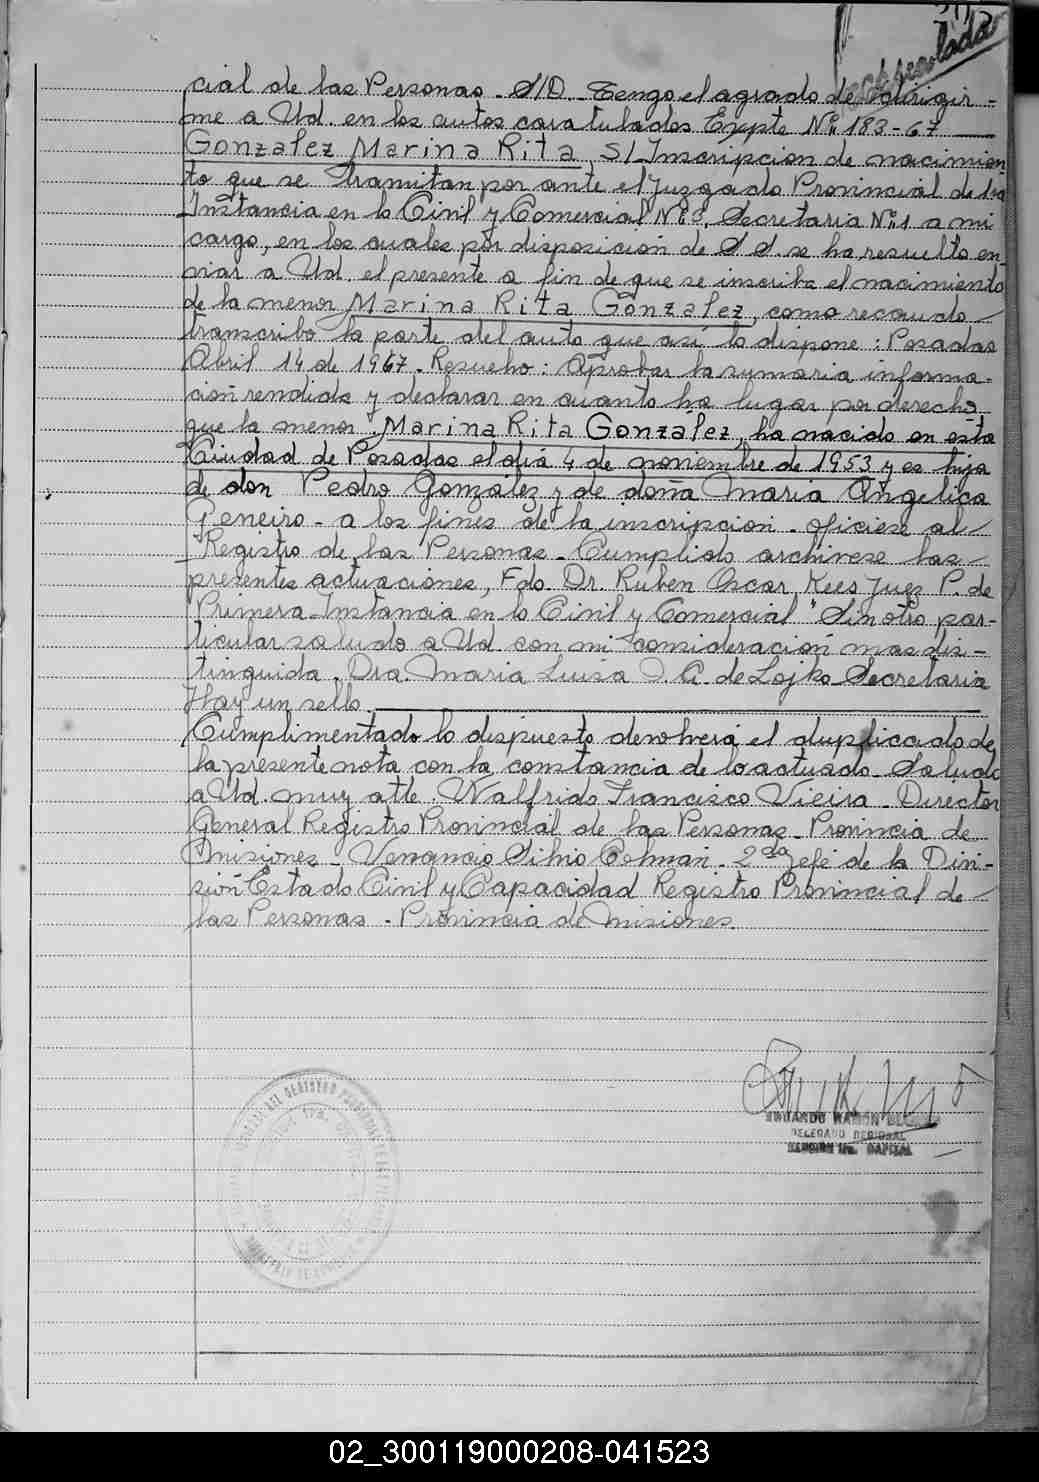 cial de las Personas - S/D - Tengo el agrado de dirigir-
me a Ud. en los autos caratulados Expte Nº 183-67
Gonzalez Marina Rita S/ Inscripcion de nacimien
to que se tramitan por ante el Juzgado Provincial de 1ra
Instancia en lo Civil y Comercial Nº 3, Secretaria Nº 1 a mi
cargo, en los cuales por disposicion de S S. se ha resuelto en-
viar a Ud. el presente a fin de que se inscriba el nacimiento
de la menor Marina Rita Gonzalez, como recaudo
transcribo la parte del auto que así lo dispone: Posadas
Abril 14 de 1967. Resuelvo: Aprobar la sumaria informa-
ción rendida y declarar en cuanto ha lugar por derecho
que la menor Marina Rita Gonzalez, ha nacido en esta
Ciudad de Posadas el día 4 de noviembre de 1953 y es hija
de don Pedro Gonzalez y de doña Maria Angelica
Geneiro - a los fines de la inscripcion - oficiese al
Registro de las Personas - Cumplido archivese las
presentes actuaciones, Fdo. Dr. Ruben Oscar Kees Juez P. de
Primera Instancia en lo Civil y Comercial " Sin otro par-
ticular saludo a Ud con mi consideración mas dis-
tinguida. Dra. Maria Luisa I. G. de Lojko Secretaria
Hay un sello.
Cumplimentado lo dispuesto devolverá el duplicado de
la presente nota con la constancia de lo actuado - Saludo
a Ud. muy atte. Walfrido Francisco Vieira - Director
General Registro Provincial de las Personas - Provincia de
Misiones - Venancio Silvio Colman - 2do Jefe de la Divi-
sión Estado Civil y Capacidad Registro Provincial de
las Personas - Provincia de Misiones.
DELEGADO REGIONAL
CAPITAL
02_300119000208-041523